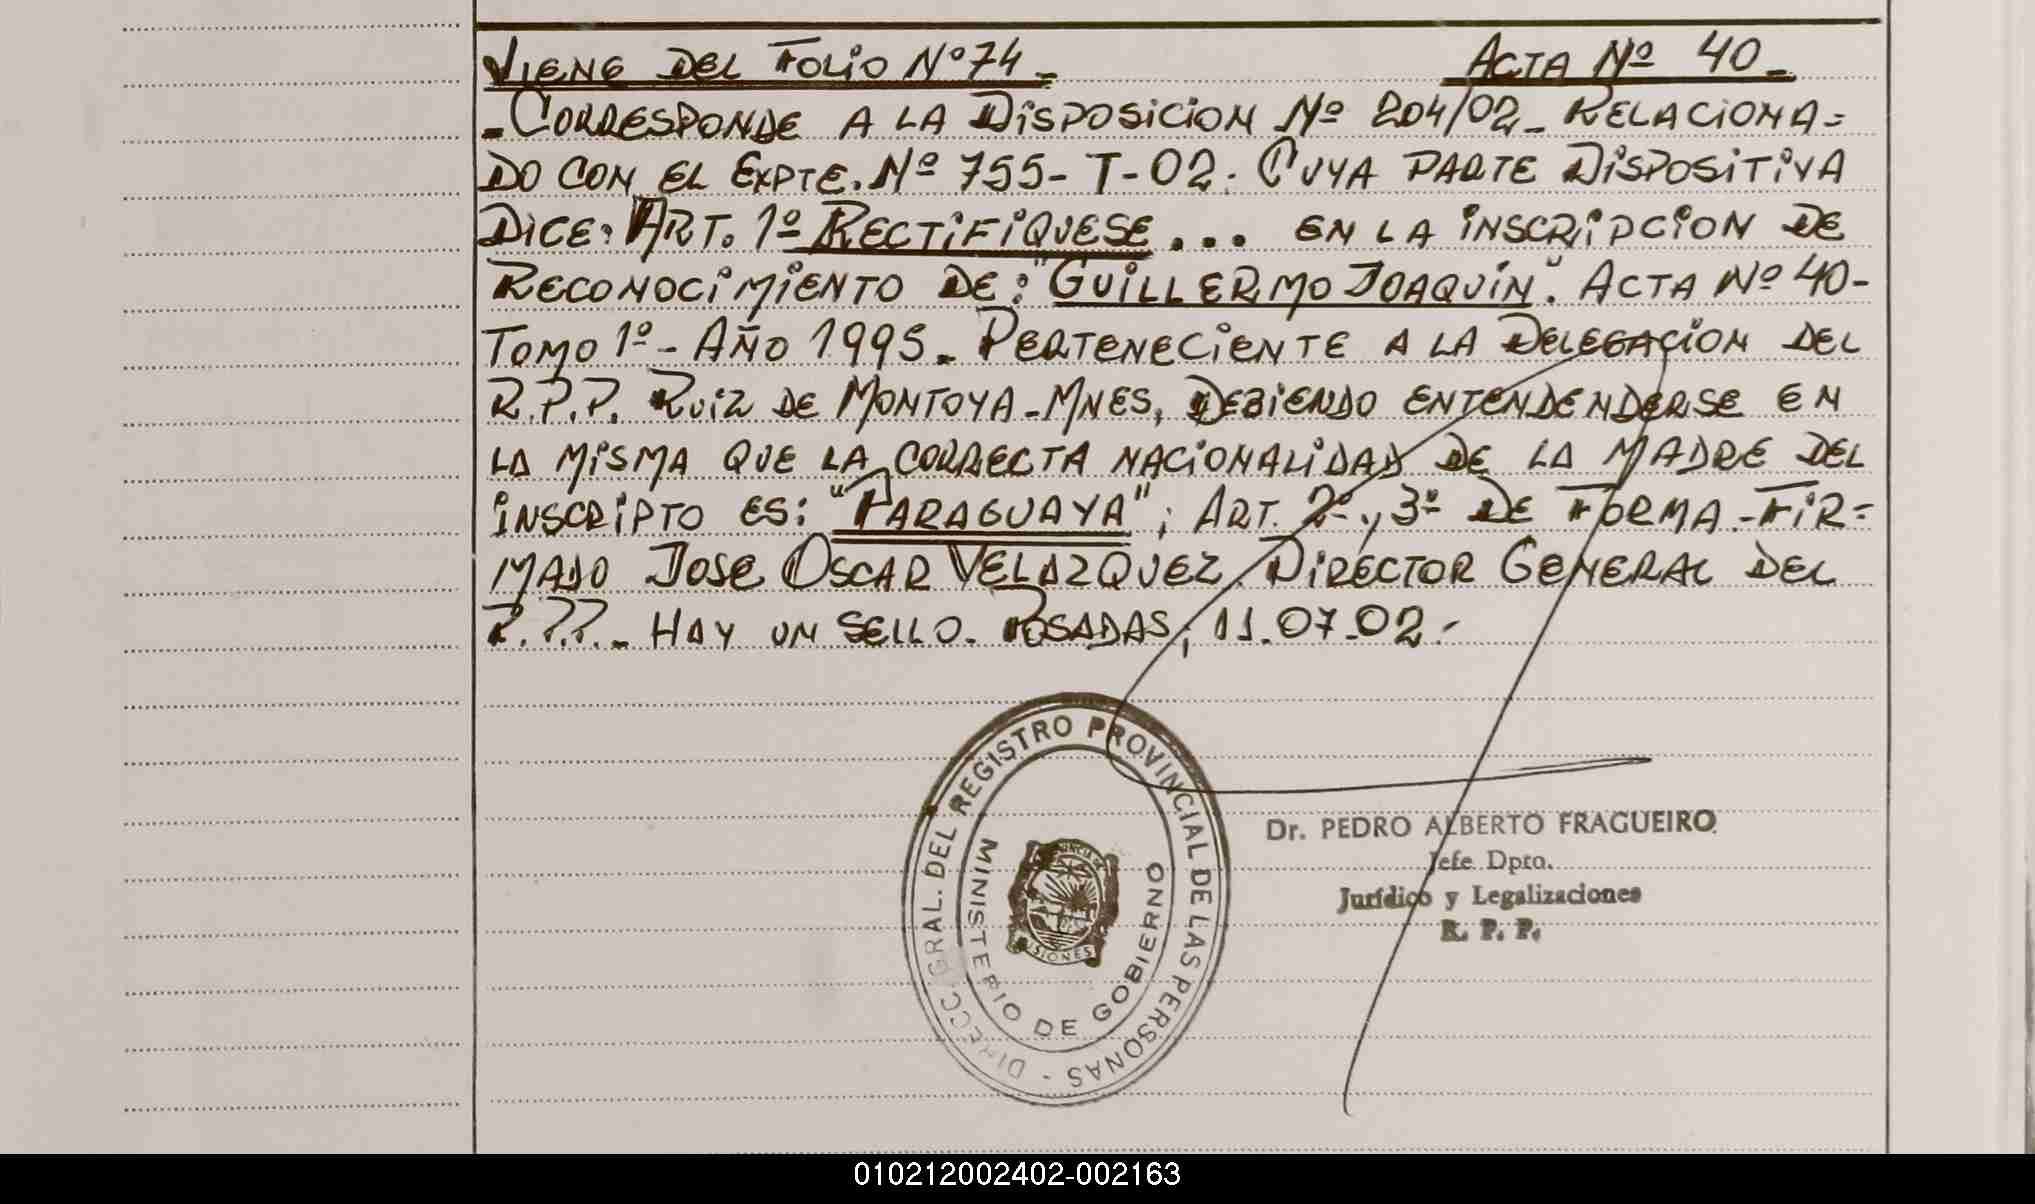 VIENE DEL FOLIO Nº 74_ ACTA Nº 40_
-CORRESPONDE A LA DISPOSICION Nº 204/02_ RELACIONA=
DO CON EL EXPTE. Nº 755-T-02. CUYA PARTE DISPOSITIVA
DICE: ART. 1º RECTIFIQUESE... EN LA INSCRIPCION DE
RECONOCIMIENTO DE: "GUILLERMO JOAQUIN". ACTA Nº 40-
TOMO 1º - AÑO 1995_ PERTENECIENTE A LA DELEGACION DEL
R.P.P. RUIZ DE MONTOYA-MNES, DEBIENDO ENTENDENDERSE EN
LA MISMA QUE LA CORRECTA NACIONALIDAD DE LA MADRE DEL
INSCRIPTO ES: "PARAGUAYA"; ART. 2º y 3º DE FORMA.-FIR=
MADO JOSE OSCAR VELAZQUEZ. DIRECTOR GENERAL DEL
R.P.P._ HAY UN SELLO. POSADAS, 11.07.02.-
DIRECC. GRAL. DEL REGISTRO PROVINCIAL DE LAS PERSONAS -
MINISTERIO DE GOBIERNO
PROVINCIA DE
MISIONES
Dr. PEDRO ALBERTO FRAGUEIRO
Jefe Dpto.
Jurídico y Legalizaciones
R. P. P.
010212002402-002163